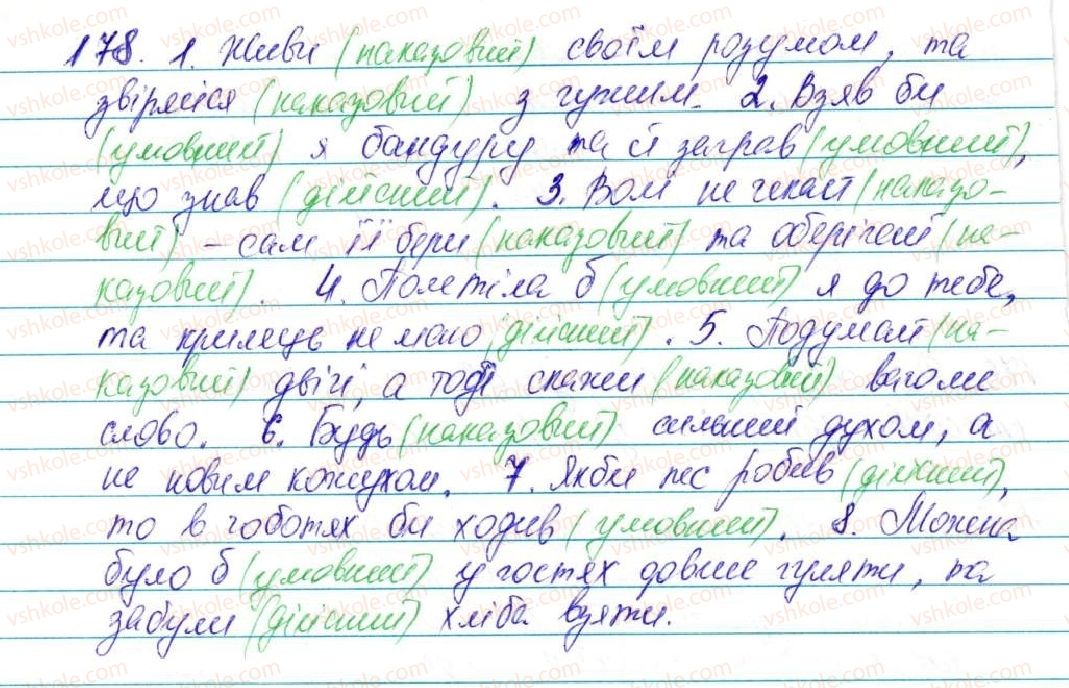 178. 1. Живи (наказовий) своїм розумом, та
звіряйся (наказовий) з чужим. 2. Взяв би
(умовний) я бандуру та й заграв (умовний),
що знав (дійсний). 3. Волі не чекай (наказо-
вий) – сам її бери (наказовий) та оберігай (на-
казовий). 4. Полетіла б (умовний) я до тебе,
та крилець не маю (дійсний). 5. Подумай (на-
казовий) двічі, а тоді скажи (наказовий) вагоме
слово. 6. Будь (наказовий) сильний духом, а
не новим кожухом. 7. Якби пес робив (дійсний),
то в чоботях би ходив (умовний). 8. Можна
було б (умовний) у гостях довше гуляти, та
забули (дійсний) хліба взяти.